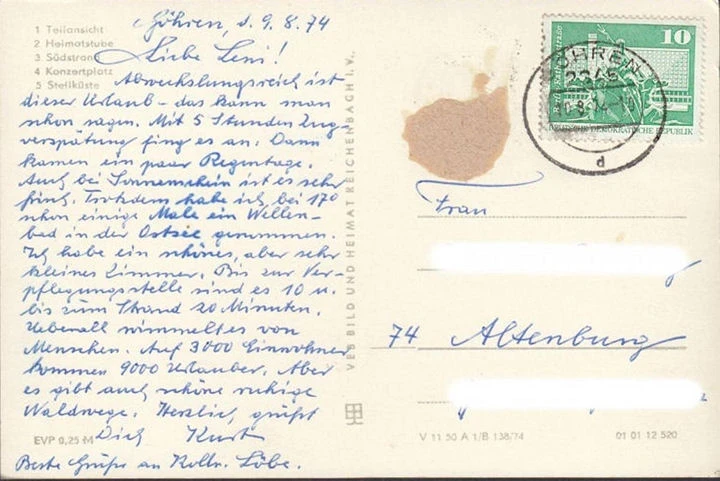 1 Teilansicht
2 Heimatstube
3 Südstrand
4 Konzertplatz
5 Steilküste
Göhren, d. 9.8.74
Liebe Leni!
Abwechslungsreich ist
dieser Urlaub – das kann man
schon sagen. Mit 5 Stunden Zug-
verspätung fing es an. Dann
kamen ein paar Regentage.
Auch bei Sonnenschein ist es sehr
frisch. Trotzdem habe ich bei 17°
schon einige Male ein Wellen-
bad in der Ostsee genommen.
Ich habe ein schönes, aber sehr
kleines Zimmer. Bis zur Ver-
pflegungsstelle sind es 10 u.
bis zum Strand 20 Minuten.
Ueberall wimmelt es von
Menschen. Auf 3000 Einwohner
kommen 9000 Urlauber. Aber
es gibt auch schöne ruhige
Waldwege. Herzlich grüßt
Dich Kurt
EVP 0,25 M
Beste Grüße an Kolln. Löbe.
VEB BILD UND HEIMAT REICHENBACH I. V.
10
DEUTSCHE DEMOKRATISCHE REPUBLIK
GÖHREN
2345
d
Frau
74 Altenburg
V 11 50 A 1/B 138/74
01 01 12 520